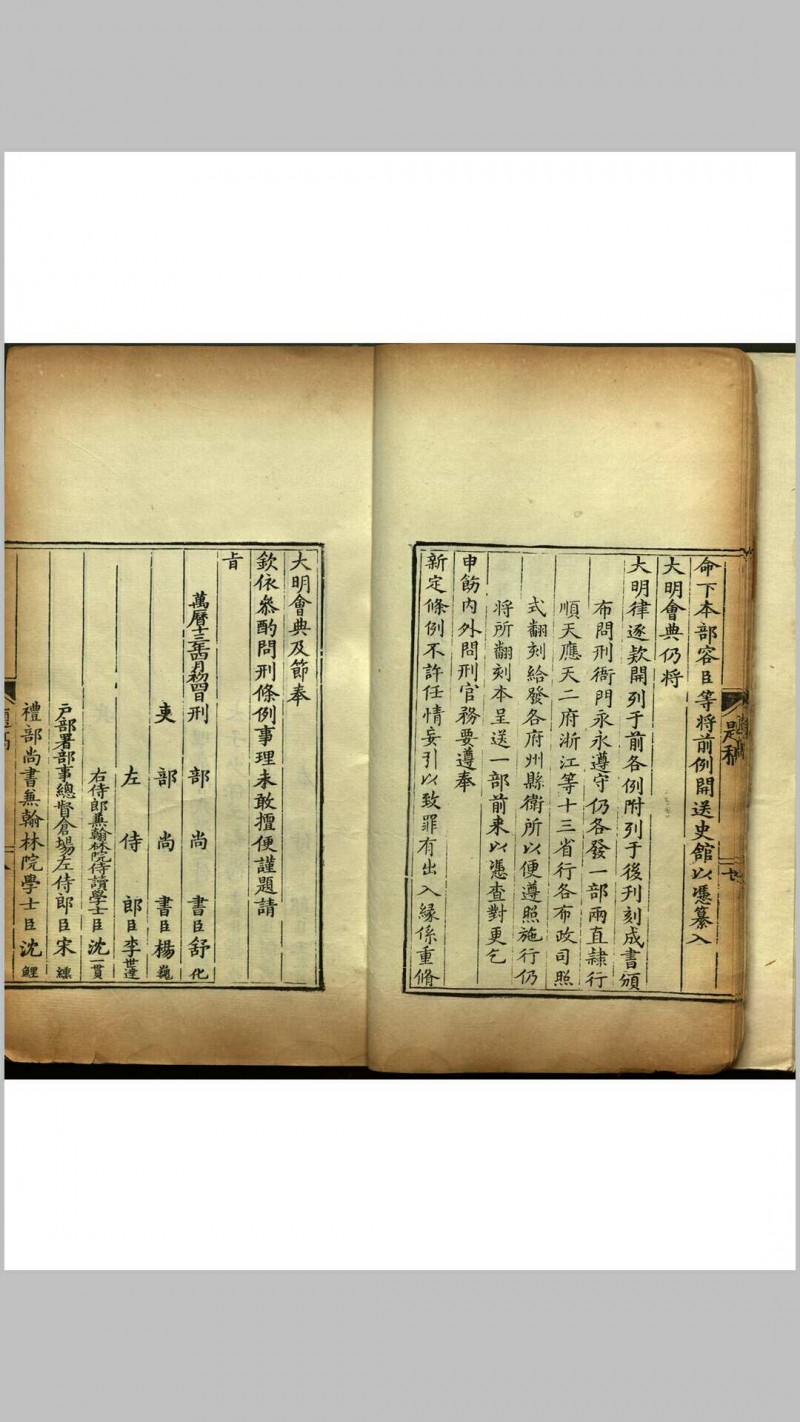 題稿
七
命下本部容臣等將前例開送史館以憑纂入
大明會典仍將
大明律逐款開列于前各例附列于後刊刻成書頒
布問刑衙門永永遵守仍各發一部兩直隸行
順天應天二府浙江等十三省行各布政司照
式翻刻給發各府州縣衛所以便遵照施行仍
將所翻刻本呈送一部前來以憑查對更乞
申飭內外問刑官務要遵奉
新定條例不許任情妄引以致罪有出入緣係重脩
大明會典及節奉
欽依叅酌問刑條例事理未敢擅便謹題請
旨
萬曆十三年四月初四日刑部尚書臣舒化
吏部尚書臣楊巍
左侍郎臣李世達
右侍郎兼翰林院侍讀學士臣沈一貫
戶部署部事總督倉場左侍郎臣宋纁
禮部尚書兼翰林院學士臣沈鯉